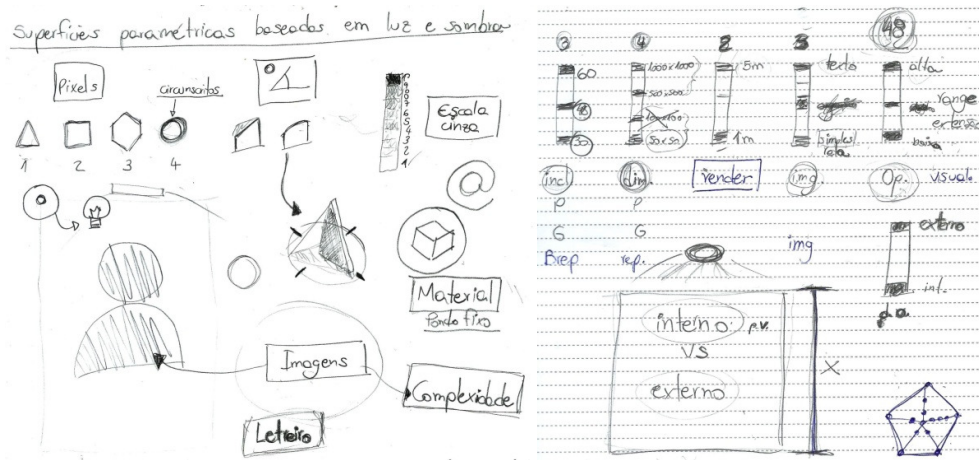 Superfícies paramétricas baseadas em luz e sombra
Pixels
circunscritos
1 2 3 4
Escala
cinza
Material
Fundo fixo
Imagens
Complexidade
Letreiro
3 4 2 3 48
60
48
30
1000x1000
500x500
100x100
50x50
5m
1m
texto
simples/
alta
range
extensão
baixa
incl.
dim.
render
img
Op.
visual.
P P
G G
Brep
rep.
img
externo
int.
interno
p.v.
vs
externo
X